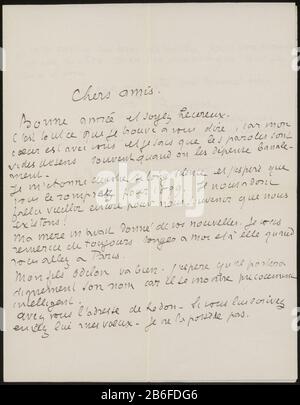 Chers amis.
Bonne année et soyez heureux.
C'est tout ce que je trouve à vous dire, car mon
cœur est avec vous et je sais que les paroles sont
vides de sens souvent quand on les dépense banale-
ment.
Je m'étonne et j'espère que
vous le romprez pour 1889.
veuillez encore pour nous que nous
existons!
Ma mère m'avait donné de vos nouvelles. Je vous
remercie de toujours songer à moi et à elle quand
vous allez à Paris.
Mon fils va bien. J'espère qu'il portera
dignement son nom car il se montre précocement
intelligent.
Avez vous l'adresse de Redon. Si vous lui écrivez
envoyez lui mes vœux. Je ne la possède pas.
alamy
Image ID: 2B6FDG6
www.alamy.com